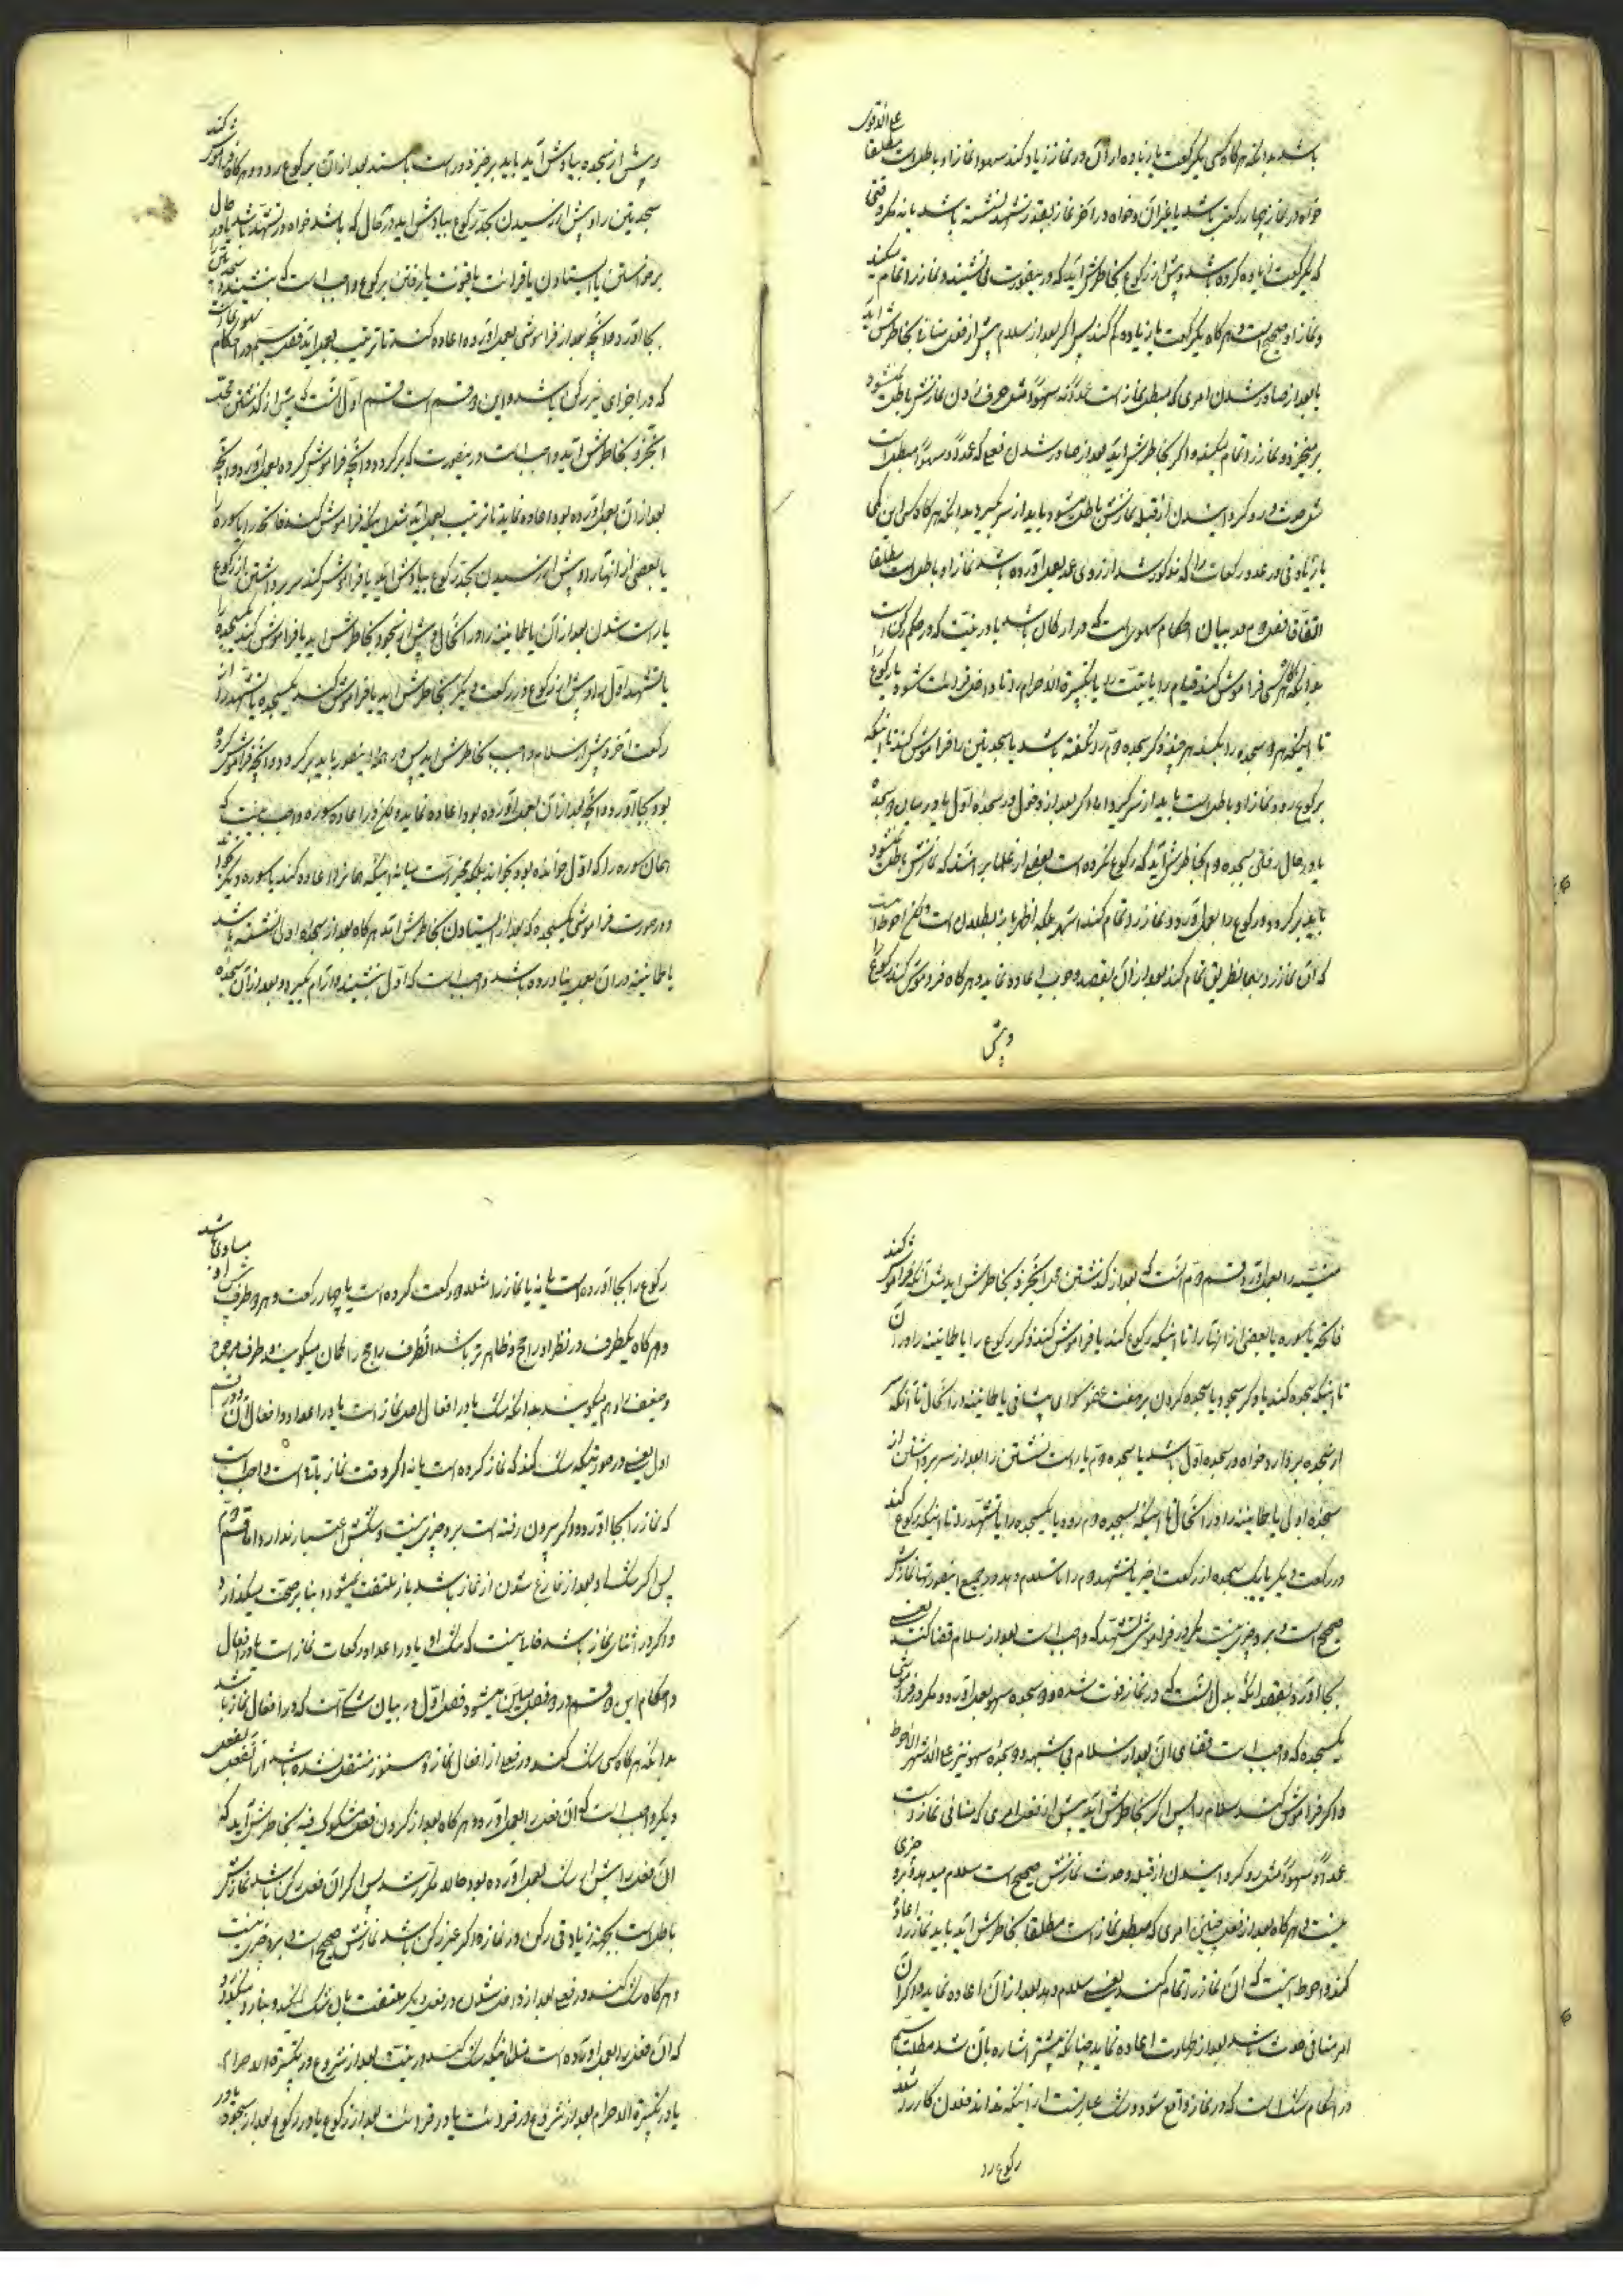 باشد بدانکه هرگاه کسی یکرکعت یا زیاده از آن در نماز زیاد کند سهوا نماز او باطلست مطلقا علی الاقوی
خواه در نماز چهار رکعتی باشد یا غیر آن و خواه در آخر نماز بقدر تشهد نشسته باشد یا نه مگر وقتی
که یکرکعت زیاده کرده باشد و پیش از رکوع بخاطرش آید که در اینصورت می نشیند و نماز را تمام میکند
و نماز او صحیح است و هرگاه یکرکعت یا زیاده کم کند پس اگر بعد از سلام پیش از فعل منافی بخاطرش آید
یا بعد از صادر شدن امری که مبطل نماز است عمدا نه سهوا مثل حرف زدن نمازش باطل نمیشود
بر میخیزد و نماز را تمام میکند و اگر بخاطرش آید بعد از صادر شدن فعلی که عمدا و سهوا مبطل است
مثل حدث و رو گردانیدن از قبله نمازش باطل میشود و باید از سر گیرد و بدانکه هرگاه کسی این کمی
یا زیادتی در عدد رکعات را که مذکور شد از روی عمد بعمل آورده باشد نماز او باطلست مطلقا
اتفاقا فصل دوم در بیان احکام سهوی است که در ارکان باشد یا در نیت که در حکم رکن است
بدانکه هرگاه کسی فراموش کند قیام را یا نیت را یا تکبیرة الاحرام را تا داخل قرائت شود یا رکوع را
تا اینکه هر دو سجده را بکند هرچند ذکر سجده دوم را نگفته باشد یا سجدتین را فراموش کند تا اینکه
برکوع رود نماز او باطلست باید از سر گیرد و اما اگر بعد از دخول در سجده اول یا در میان دو سجده
یا در حال رفتن بسجده دوم بخاطرش آید که رکوع نکرده است بعضی از علما برآنند که نمازش باطل نمیشود
باید برگردد و رکوع را بعمل آورد و نماز را تمام کند اشهر بلکه اظهر بطلان است و لیکن احوط آنست
که آن نماز را بهمان طریق تمام کند و بعد از آن بقصد وجوب اعاده نماید و هرگاه فراموش کند رکوع را
و پیش
و پیش از سجده بیادش آید باید برخیزد و راست بایستد بعد از آن برکوع رود و هرگاه فراموش کند
سجدتین را و پیش از رسیدن بحد رکوع بیادش آید در هر حال که باشد خواه در تشهد باشد یا در حال
برخواستن یا ایستادن یا قرائت یا قنوت یا رفتن برکوع واجب است که بنشیند و سجدتین را
بجا آورد و آنچه بعد از فراموشی بعمل آورده اعاده کند تا ترتیب بعمل آید فصل سیم در احکام سهوی است
که در اجزای غیر رکنی باشد و این دو قسم است قسم اول آنست که پیش از گذشتن محل
آنجزء بخاطرش آید واجب است در اینصورت که برگردد و آنچه فراموش کرده بعمل آورد و آنچه
بعد از آن بعمل آورده بود اعاده نماید تا ترتیب بعمل آید مثل اینکه فراموش کند فاتحه را یا سوره را
یا بعضی از آنها را و پیش از رسیدن بحد رکوع بیادش آید یا فراموش کند سر برداشتن از رکوع
یا راست شدن بعد از آن یا طمانینه را در آنحال و پیش از سجود بخاطرش آید یا فراموش کند یکسجده را
یا تشهد اول را و پیش از رکوع در رکعت دیگر بخاطرش آید یا فراموش کند یکسجده یا تشهد را از
رکعت آخر و پیش از سلام واجب بخاطرش آید پس در همه این صور باید برگردد و آنچه فراموش کرده
بود بجا آورد و آنچه بعد از آن بعمل آورده بود اعاده نماید و لیکن در اعاده سوره واجب نیست که
همان سوره را که اول خوانده بود بخواند بلکه مخیر است میانه اینکه همانرا اعاده کند یا سوره دیگر بخواند
و در صورت فراموشی یکسجده که بعد از ایستادن بخاطرش آید هرگاه بعد از سجده اولی ننشسته باشد
یا طمانینه در آن بعمل نیاورده باشد واجب است که اول بنشیند و آرام گیرد و بعد از آن سجده
منسیه را بعمل آورد قسم دوم آنست که بعد از گذشتن محل آنجزء بخاطرش آید مثل آنکه فراموش کند
فاتحه یا سوره یا بعضی از آنها را تا اینکه رکوع کند یا فراموش کند ذکر رکوع را یا طمانینه را در آن
تا اینکه سجده کند یا ذکر سجود یا سجده کردن بر هفت عضو سوای پیشانی یا طمانینه در آنحال تا آنکه سر
از سجده بردارد خواه در سجده اول باشد یا سجده دوم یا راست نشستن را بعد از سر برداشتن از
سجده اولی یا طمانینه را در آنحال تا اینکه بسجده دوم رود یا یکسجده را یا تشهد را تا اینکه رکوع کند
در رکعت دیگر یا یک سجده از رکعت اخیر یا تشهد دوم را تا سلام دهد و در جمیع اینصورتها نمازش
صحیح است و بر او چیزی نیست مگر در فراموشی تشهد که واجب است بعد از سلام قضا کند یعنی
بجا آورد بقصد آنکه بدل آنست که در نماز فوت شده و دو سجده سهو بعمل آورد و مگر در فراموشی
یکسجده که واجب است قضای آن بعد از سلام بی شبهه و دو سجده سهو نیز علی الاشهر الاحوط
و اگر فراموش کند سلام را پس اگر بخاطرش آید پیش از فعل امری که منافی نماز است
عمدا و سهوا مثل رو گردانیدن از قبله و حدث نمازش صحیح است سلام میدهد و بر او چیزی
نیست و هرگاه بعد از فعل چنین امری که مبطل نماز است مطلقا بخاطرش آید باید نماز را اعاده
کند و احوط اینست که آن نماز را تمام کند یعنی سلام دهد بعد از آن اعاده نماید و اگر آن
امر منافی حدث باشد بعد از طهارت اعاده نماید چنانکه پیشتر اشاره بآن شد مطلب سیم
در احکام شک است که در نماز واقع شود و شک عبارتست از اینکه نداند فلان کار را مثلا
رکوع را
رکوع را بجا آورده است یا نه یا نماز را مثلا دو رکعت کرده است یا چهار رکعت و هر دو طرف نزد او مساوی باشد
و هرگاه یکطرف در نظر او راجح و ظاهرتر باشد آنطرف راجح را گمان میگویند و طرف مرجوح
و ضعیف را وهم میگویند بدانکه شک یا در افعال اصل نماز است یا در اعداد و افعال آن قسم
اول یعنی در صورتیکه شک کند که نماز کرده است یا نه اگر وقت نماز باقی است واجب است
که نماز را بجا آورد و اگر بیرون رفته است بر او چیزی نیست و شکش اعتبار ندارد و اما قسم دوم
پس اگر شک او بعد از فارغ شدن از نماز باشد باز ملتفت نمیشود و بنا بر صحت میگذارد
و اگر در اثنای نماز باشد خالی نیست که شک او یا در اعداد رکعات نماز است یا در افعال
و احکام این دو قسم در دو فصل بیان میشود فصل اول در بیان شکی است که در افعال نماز باشد
بدانکه هرگاه کسی شک کند در فعلی از افعال نماز و هنوز منتقل نشده باشد از آنفعل بفعل
دیگر واجب است که آن فعل را بعمل آورد و هرگاه بعد از کردن فعل مشکوک فیه بخاطرش آید که
آن فعل را پیش از شک بعمل آورده بود و حالا مکرر شد پس اگر آن فعل رکن باشد نمازش
باطل است بجهت زیادتی رکن در نماز و اگر غیر رکن باشد نمازش صحیح است و بر او چیزی نیست
و هرگاه شک کند در فعلی بعد از داخل شدن در فعل دیگر ملتفت بآن شک نمیشود و بنا را میگذارد
که آن فعل را بعمل آورده است مثل اینکه شک کند در نیت بعد از شروع در تکبیرة الاحرام
یا در تکبیرة الاحرام بعد از شروع در قرائت یا در قرائت بعد از رکوع یا در رکوع بعد از سجود یا در